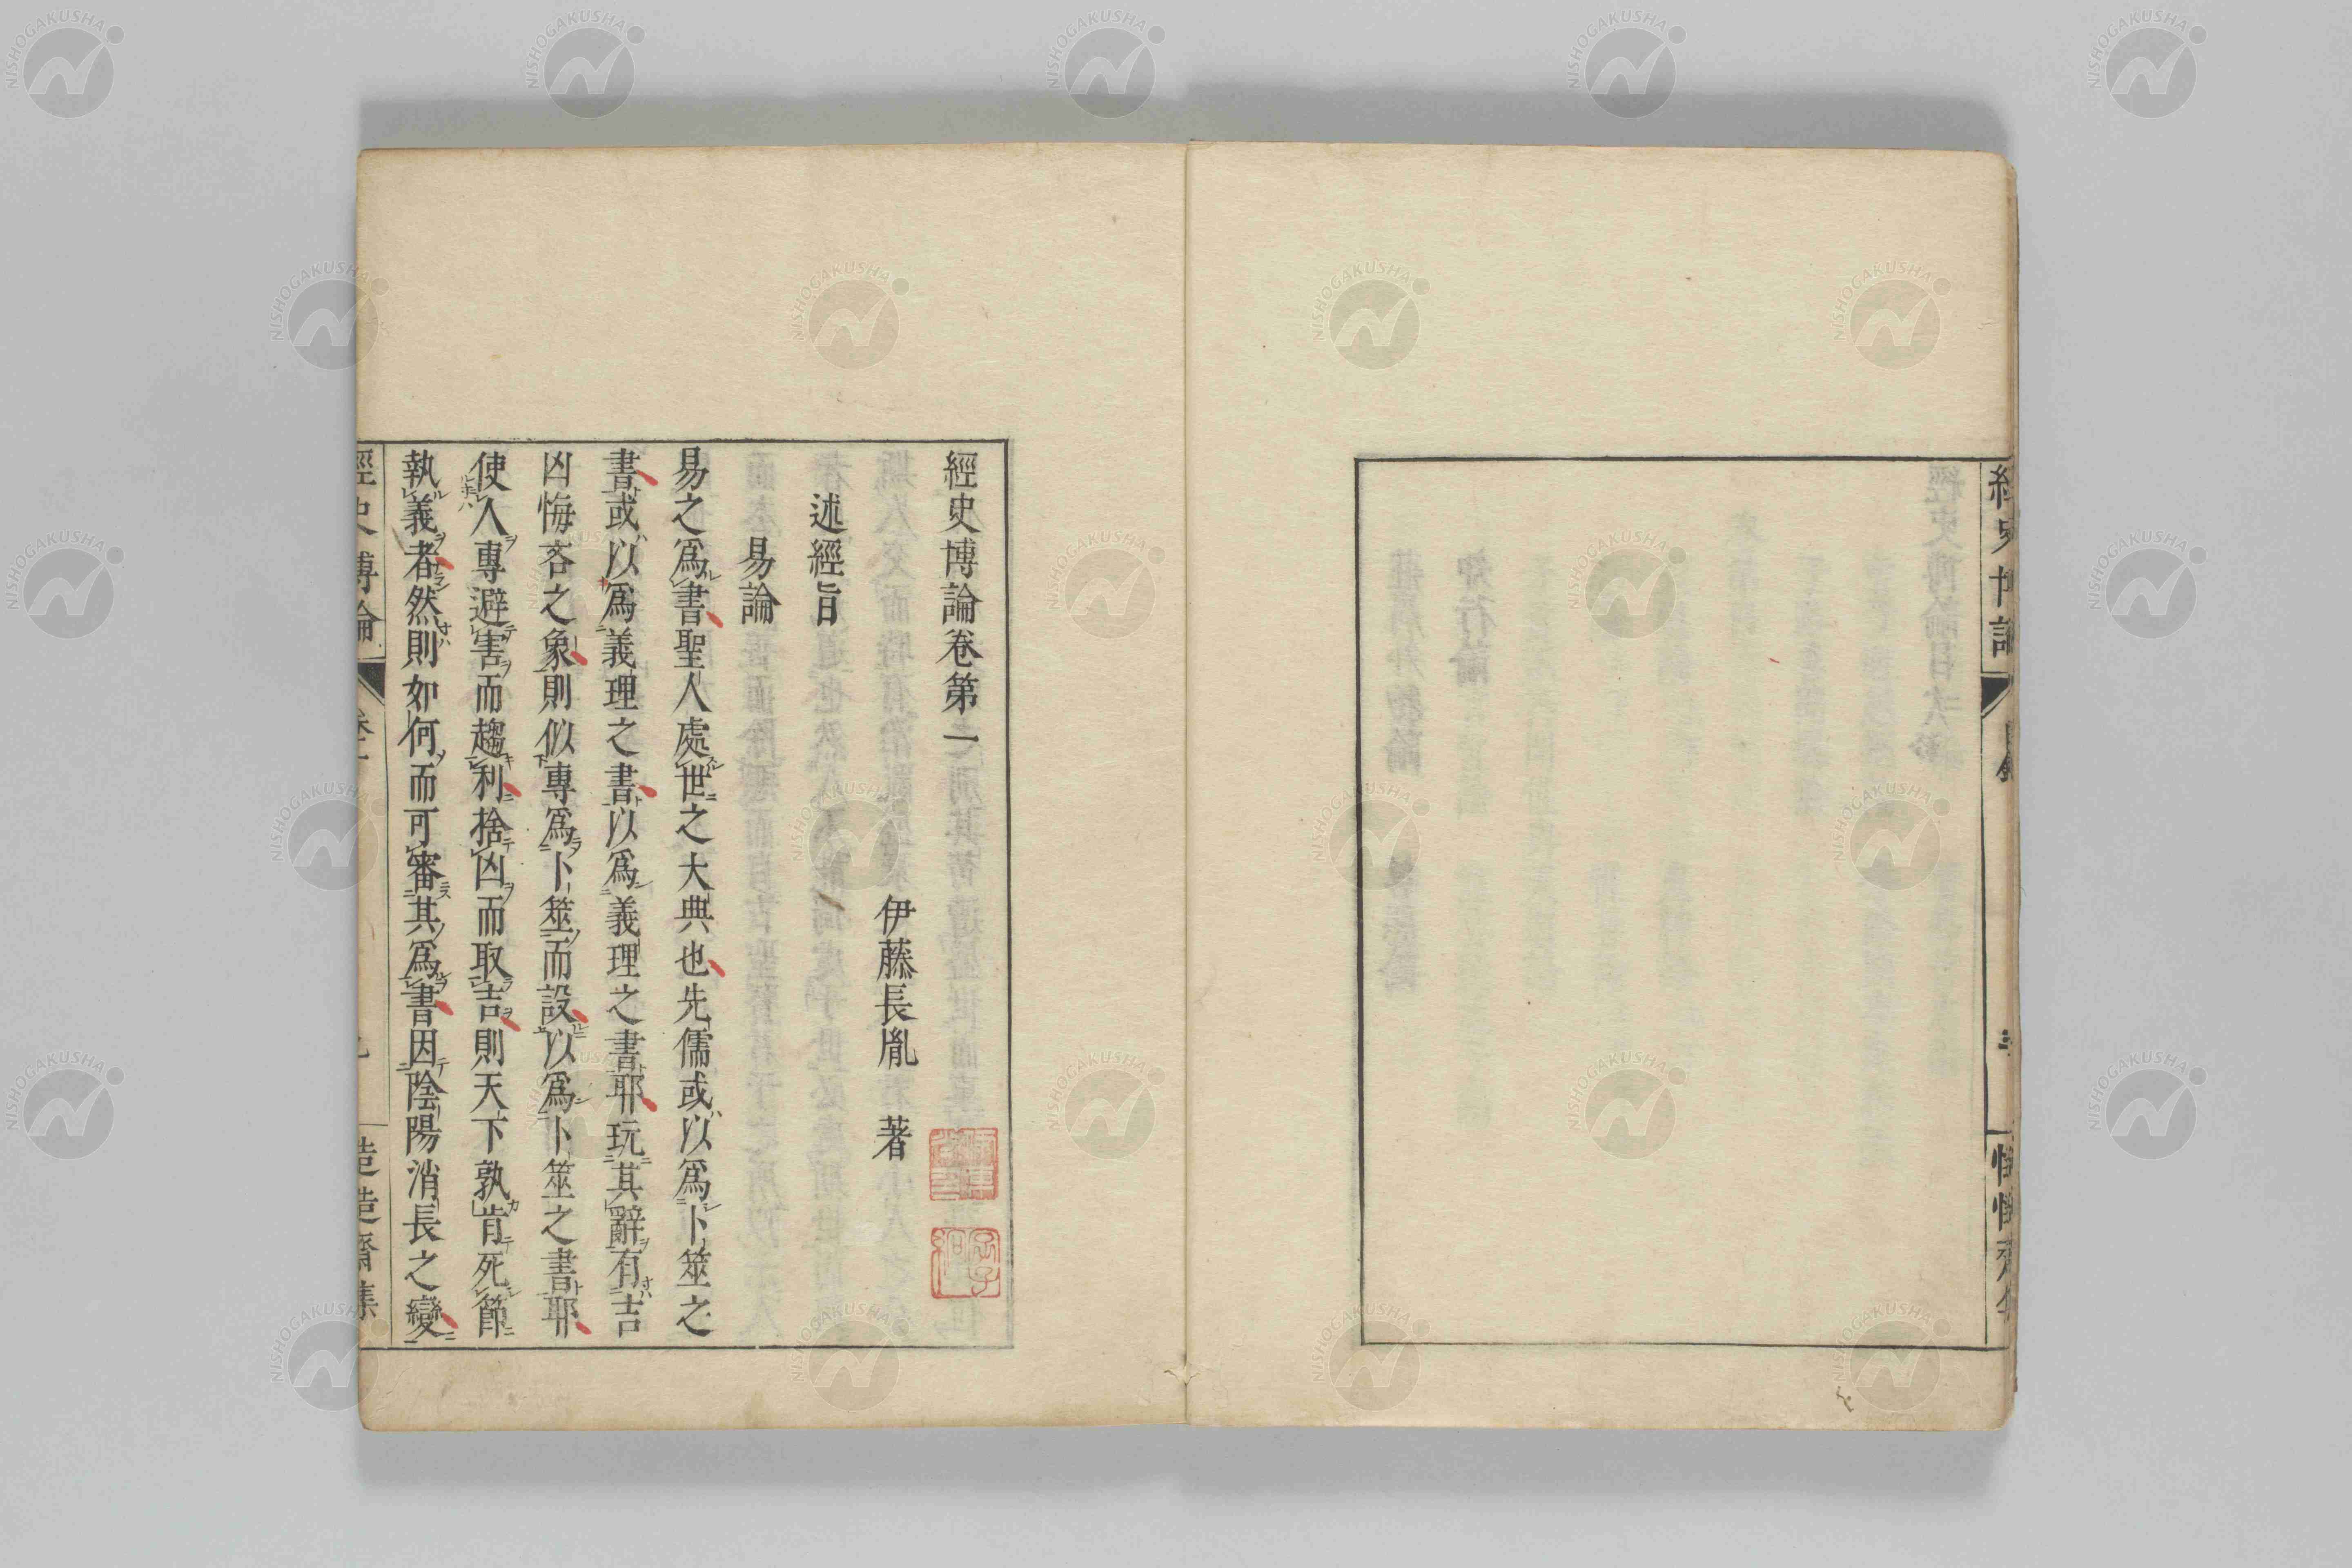 經史博論卷第一
伊藤長胤　著
述經旨
易論
易之爲書聖人處世之大典也先儒或以爲卜筮之
書或以爲義理之書以爲義理之書耶玩其辭有吉
凶悔吝之象則似專爲卜筮而設以爲卜筮之書耶
使人專避害而趨利捨凶而取吉則天下孰肯死節
執義者然則如何而可審其爲書因陰陽消長之變
經史博論
NISHOGAKUSHA